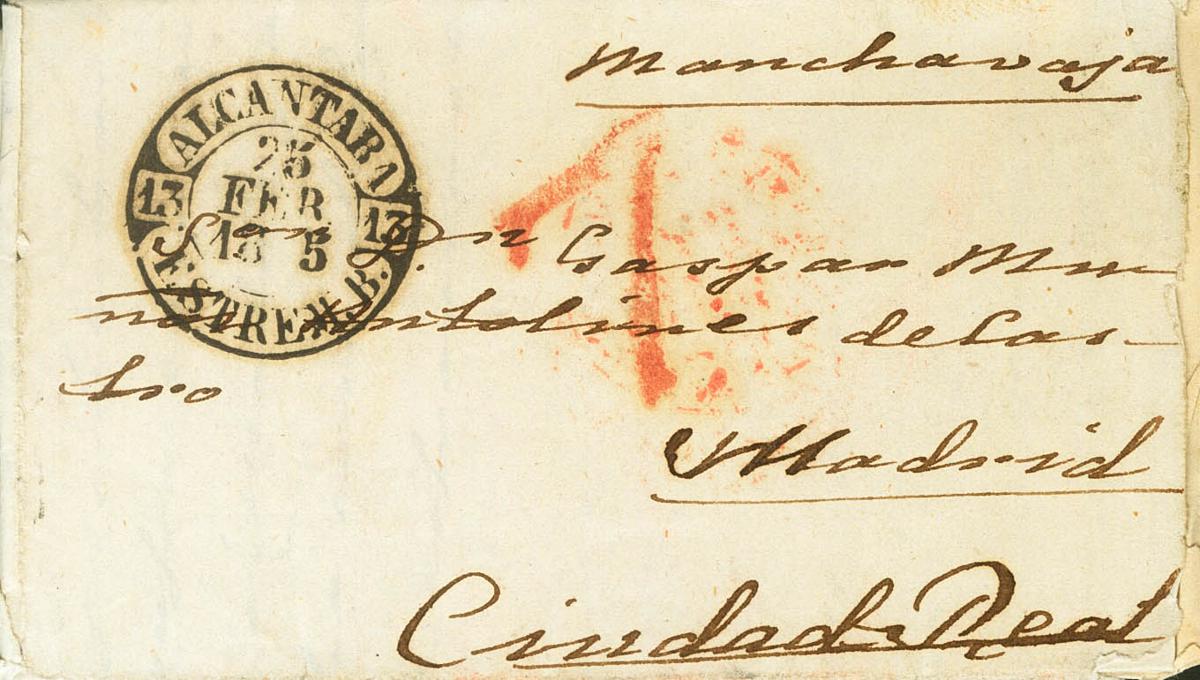 Manchavaja
ALCANTARA
25
FEB
18 5
13
13
ESTREM. B.
Sor Dn Gaspar Mu-
ñoz Antolinez de Cas-
tro
Madrid
Ciudad Real
1